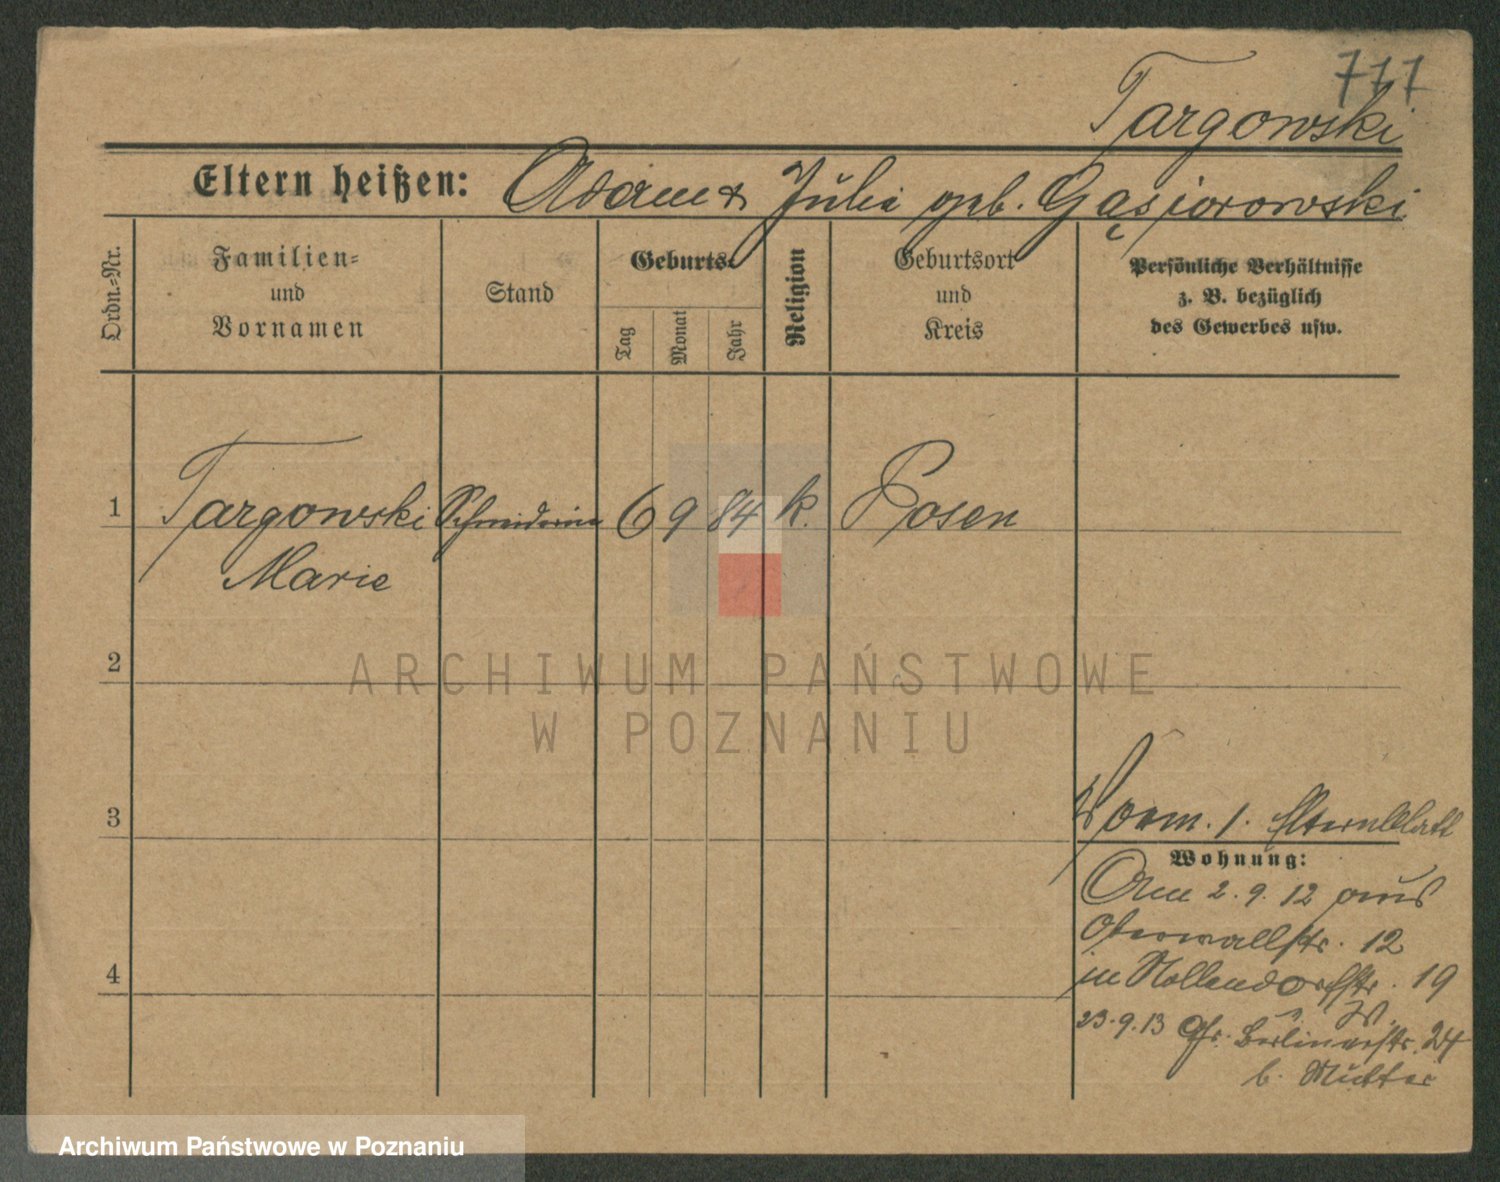 777
Targowski
Eltern heißen: Adam & Julia geb. Gąsiorowski
Ordn.-Nr.
Familien-
und
Vornamen
Stand
Geburts-
Tag
Monat
Jahr
Religion
Geburtsort
und
Kreis
Persönliche Verhältnisse
z. B. bezüglich
des Gewerbes usw.
1 Targowski Schneiderin 6 9 84 k. Posen
Marie
2
ARCHIWUM PAŃSTWOWE
W POZNANIU
3
Vorm. 1. Elternblatt
Wohnung:
Am 2. 9. 12 aus
Oberwallstr. 12
in Nollendorfstr. 19
4
23.9.13 Gr. Berlinerstr. 24
b. Mutter
Archiwum Państwowe w Poznaniu